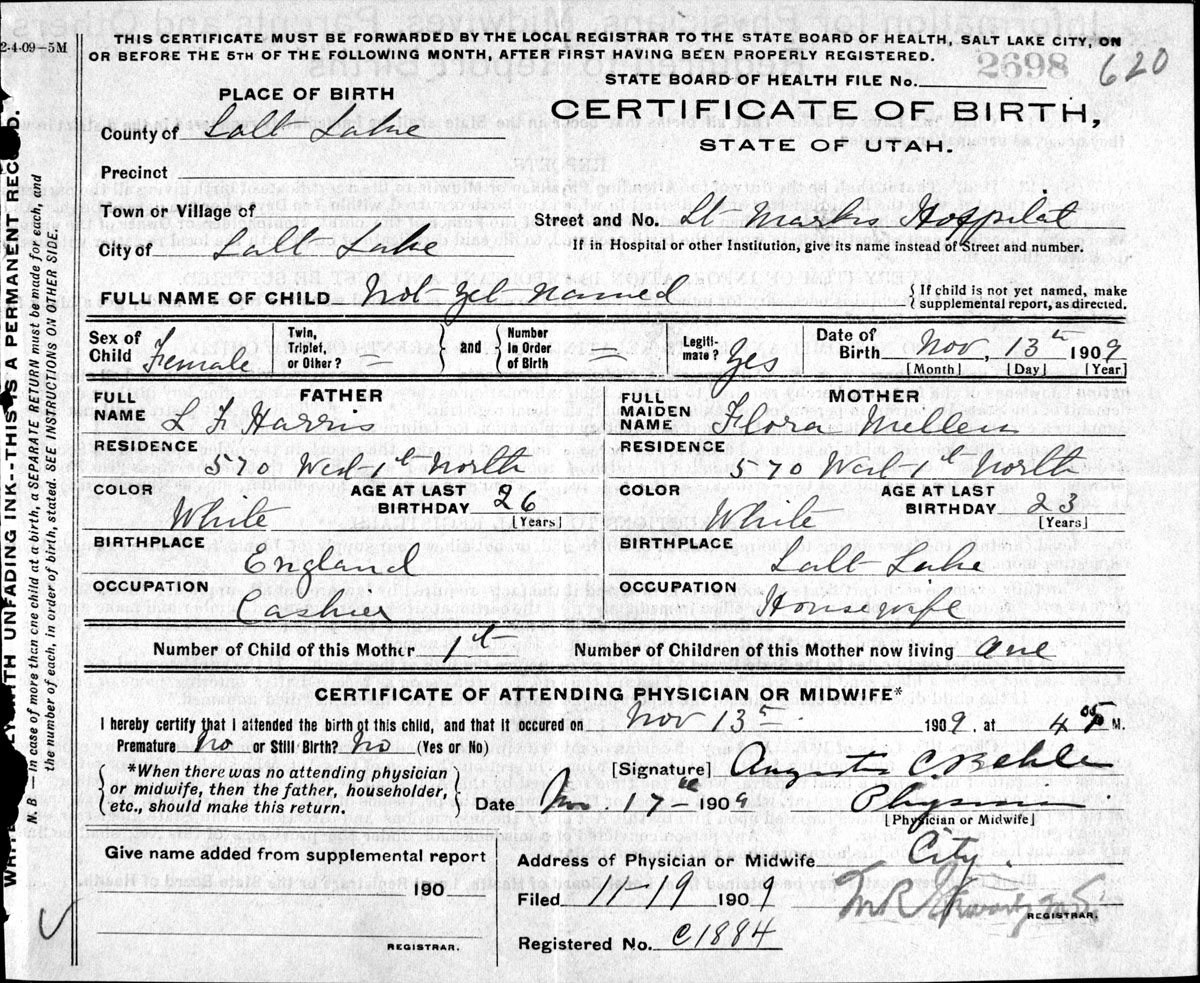 2-4-09-5M
THIS CERTIFICATE MUST BE FORWARDED BY THE LOCAL REGISTRAR TO THE STATE BOARD OF HEALTH, SALT LAKE CITY, ON
OR BEFORE THE 5TH OF THE FOLLOWING MONTH, AFTER FIRST HAVING BEEN PROPERLY REGISTERED.
2698 620
STATE BOARD OF HEALTH FILE No.
PLACE OF BIRTH
CERTIFICATE OF BIRTH,
STATE OF UTAH.
County of Salt Lake
Precinct
Town or Village of
Street and No. St Marks Hospital
City of Salt Lake
If in Hospital or other Institution, give its name instead of Street and number.
FULL NAME OF CHILD Not yet named
{ If child is not yet named, make
supplemental report, as directed.
Sex of Child Female
Twin, Triplet, or Other? –
and
Number in Order of Birth –
Legitimate? Yes
Date of Birth Nov, 13th 1909
[Month] [Day] [Year]
FATHER
FULL NAME L F Harris
RESIDENCE
570 West 1st North
COLOR White
AGE AT LAST BIRTHDAY 26
[Years]
BIRTHPLACE
England
OCCUPATION
Cashier
MOTHER
FULL MAIDEN NAME Flora Mellen
RESIDENCE
570 West 1st North
COLOR White
AGE AT LAST BIRTHDAY 23
[Years]
BIRTHPLACE
Salt Lake
OCCUPATION
Housewife
Number of Child of this Mother 1st
Number of Children of this Mother now living One
CERTIFICATE OF ATTENDING PHYSICIAN OR MIDWIFE*
I hereby certify that I attended the birth of this child, and that it occured on Nov 13th 1909, at 4 05 P M.
Premature No or Still Birth? No (Yes or No)
*When there was no attending physician
or midwife, then the father, householder,
etc., should make this return.
[Signature] Augustus C. Behle
Date Nov 17th 1909
Physician
[Physician or Midwife]
Give name added from supplemental report
190
REGISTRAR.
Address of Physician or Midwife City.
Filed 11-19 1909
REGISTRAR.
Registered No. C1884
N. B. — In case of more than one child at a birth, a SEPARATE RETURN must be made for each, and
the number of each, in order of birth, stated. SEE INSTRUCTIONS ON OTHER SIDE.
UNFADING INK--THIS IS A PERMANENT